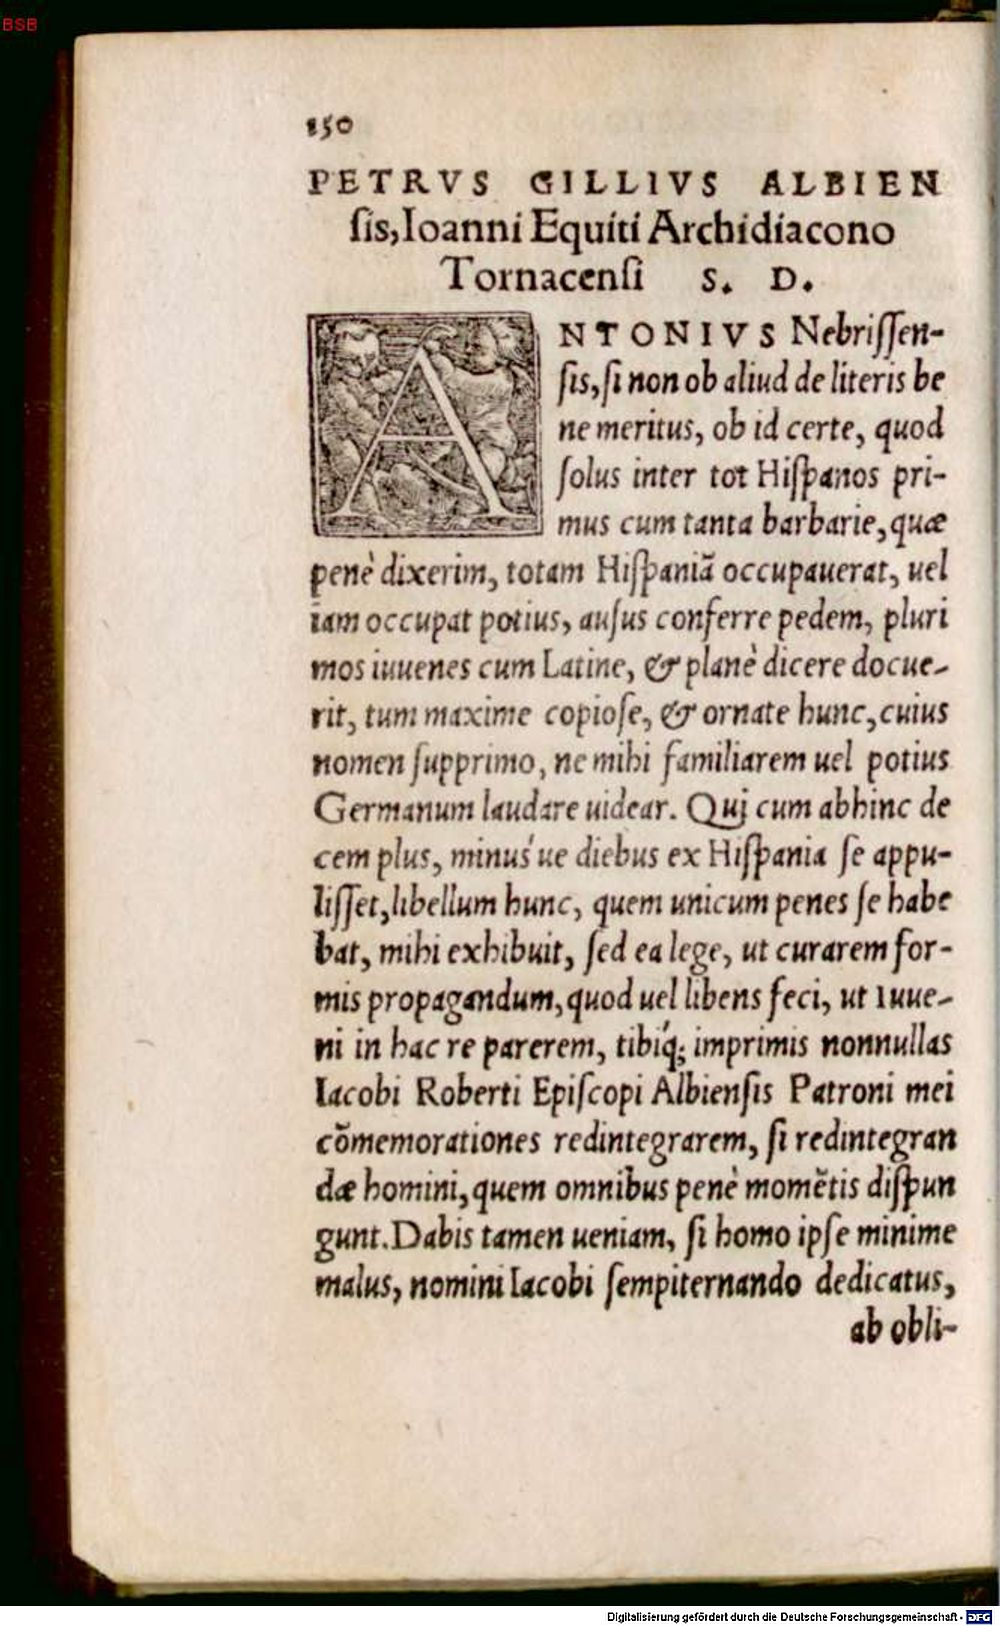 BSB
150
PETRVS GILLIVS ALBIEN
ſis, Ioanni Equiti Archidiacono
Tornacenſi S. D.
ANTONIVS Nebriſſen-
ſis, ſi non ob aliud de literis be
ne meritus, ob id certe, quod
ſolus inter tot Hiſpanos pri-
mus cum tanta barbarie, quæ
penè dixerim, totam Hiſpaniā occupauerat, uel
iam occupat potius, auſus conferre pedem, pluri
mos iuuenes cum Latine, & planè dicere docue-
rit, tum maxime copioſe, & ornate hunc, cuius
nomen ſupprimo, ne mihi familiarem uel potius
Germanum laudare uidear. Qui cum abhinc de
cem plus, minus´ue diebus ex Hiſpania ſe appu-
liſſet, libellum hunc, quem unicum penes ſe habe
bat, mihi exhibuit, ſed ea lege, ut curarem for-
mis propagandum, quod uel libens feci, ut Iuue-
ni in hac re parerem, tibíq; imprimis nonnullas
Iacobi Roberti Epiſcopi Albienſis Patroni mei
cōmemorationes redintegrarem, ſi redintegran
dæ homini, quem omnibus penè momētis diſpun
gunt. Dabis tamen ueniam, ſi homo ipſe minime
malus, nomini Iacobi ſempiternando dedicatus,
ab obli-
Digitalisierung gefördert durch die Deutsche Forschungsgemeinschaft - DFG